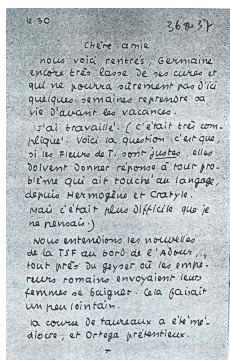 le 30
36 ou 37
Chère amie
nous voici rentrés, Germaine
encore très lasse de ses cures et
qui ne pourra sûrement pas d'ici
quelques semaines reprendre sa
vie d'avant les vacances.
J'ai travaillé. (c'était très com-
pliqué. Voici la question. C'est que,
si les Fleurs de T. sont justes, elles
doivent donner réponse à tout pro-
blème qui ait touché au langage,
depuis Hermogène et Cratyle.
Mais c'était plus difficile que je
ne pensais.)
Nous entendions les nouvelles
de la TSF au bord de l'Adour,
tout près du geyser où les empe-
reurs romains envoyaient leurs
femmes se baigner. Cela faisait
un peu lointain.
la course de taureaux a été mé-
diocre, et Ortega prétentieux.